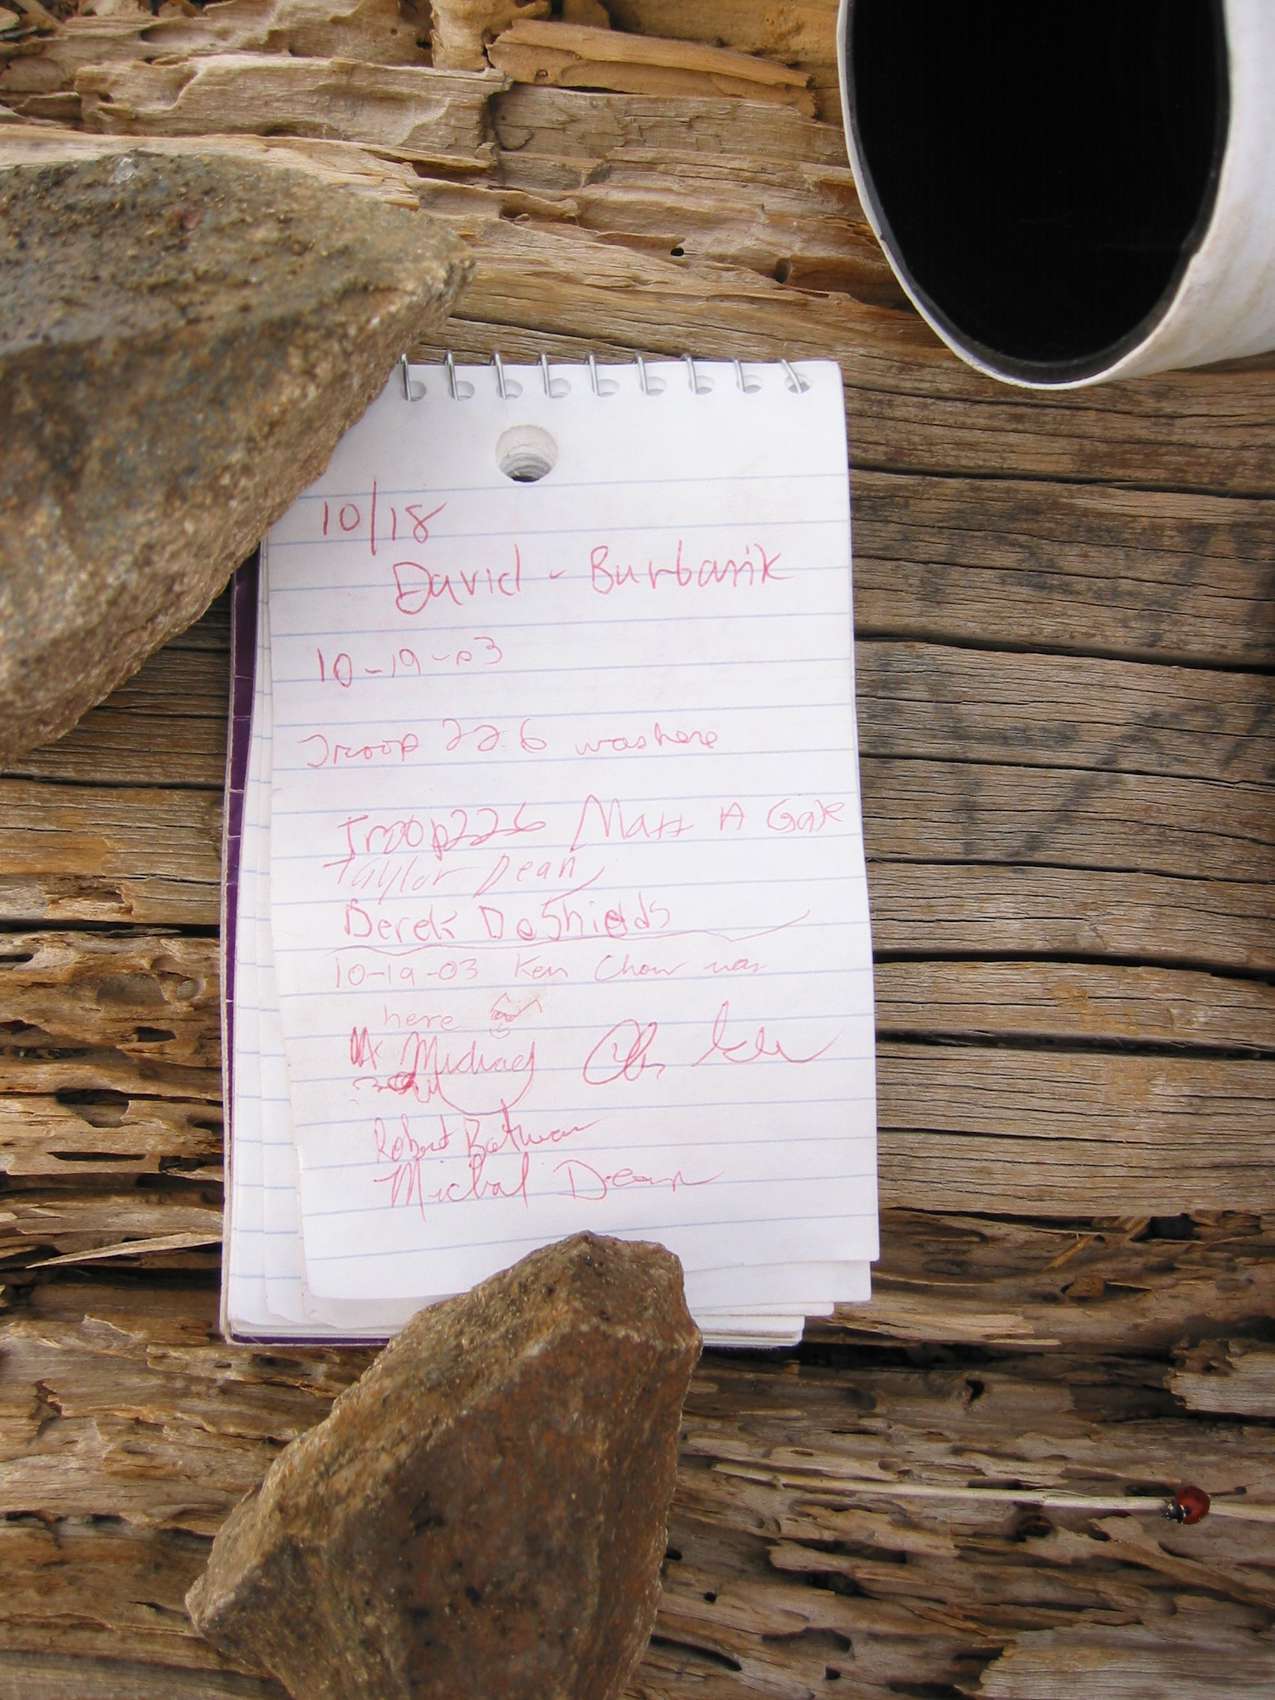 10/18
David - Burbank
10-19-03
Troop 226 was here
Troop 226 Matt A Gale
Taylor Dean
Derek DeShields
10-19-03 Ken Chow was
here
Michael
Robert Batman
Michal Dean